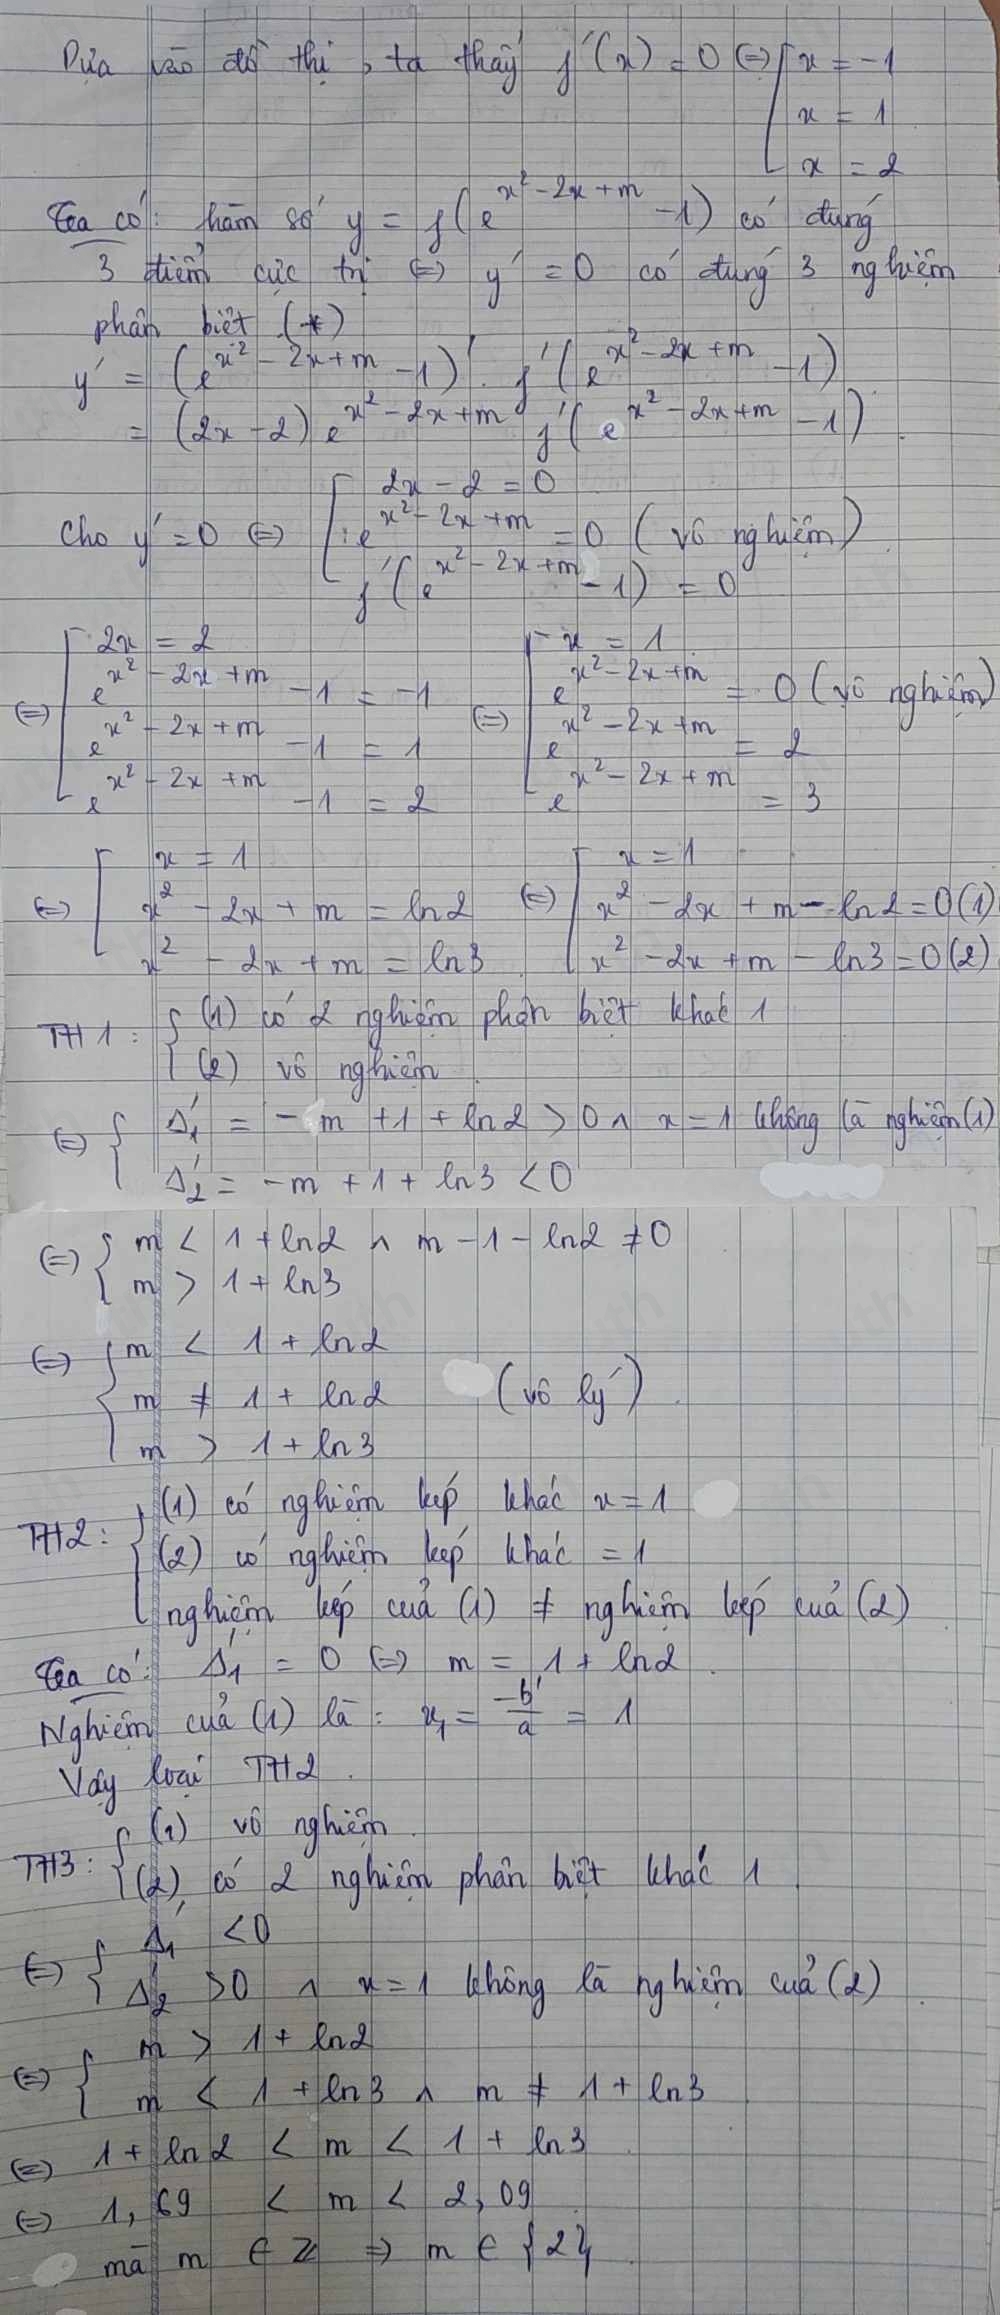 Dựa vào đồ thị, ta thấy f'(x) = 0 (=) [ x = -1
x = 1
x = 2
Ta có: hàm số y = f(e^{x² - 2x + m} - 1) có đúng
3 điểm cực trị (=) y' = 0 có đúng 3 nghiệm
phân biệt (*)
y' = (e^{x² - 2x + m} - 1)' . f'(e^{x² - 2x + m} - 1)
= (2x - 2) e^{x² - 2x + m} f'(e^{x² - 2x + m} - 1).
2x - 2 = 0
Cho y' = 0 (=) [ e^{x² - 2x + m} = 0 (vô nghiệm)
f'(e^{x² - 2x + m} - 1) = 0
2x = 2 x = 1
(=) [ e^{x² - 2x + m} - 1 = -1 (=) [ e^{x² - 2x + m} = 0 (vô nghiệm)
e^{x² - 2x + m} - 1 = 1 e^{x² - 2x + m} = 2
e^{x² - 2x + m} - 1 = 2 e^{x² - 2x + m} = 3
x = 1 x = 1
(=) [ x² - 2x + m = ln2 (=) [ x² - 2x + m - ln2 = 0 (1)
x² - 2x + m = ln3 x² - 2x + m - ln3 = 0 (2)
TH1: { (1) có 2 nghiệm phân biệt khác 1
(2) vô nghiệm.
(=) { Δ'₁ = -m + 1 + ln2 > 0 ∧ x = 1 không là nghiệm (1)
Δ'₂ = -m + 1 + ln3 < 0
(=) { m < 1 + ln2 ∧ m - 1 - ln2 ≠ 0
m > 1 + ln3
(=) { m < 1 + ln2
m ≠ 1 + ln2 (vô lý).
m > 1 + ln3
TH2: { (1) có nghiệm kép khác x = 1
(2) có nghiệm kép khác = 1
nghiệm kép của (1) ≠ nghiệm kép của (2)
Ta có: Δ'₁ = 0 (=) m = 1 + ln2.
Nghiệm của (1) là: x₁ = -b'/a = 1
Vậy loại TH2.
TH3: { (1) vô nghiệm.
(2) có 2 nghiệm phân biệt khác 1.
(=) { Δ'₁ < 0
Δ'₂ > 0 ∧ x = 1 không là nghiệm của (2).
(=) { m > 1 + ln2
m < 1 + ln3 ∧ m ≠ 1 + ln3
(=) 1 + ln2 < m < 1 + ln3
(=) 1,69 < m < 2,09
mà m ∈ Z => m ∈ {2}.